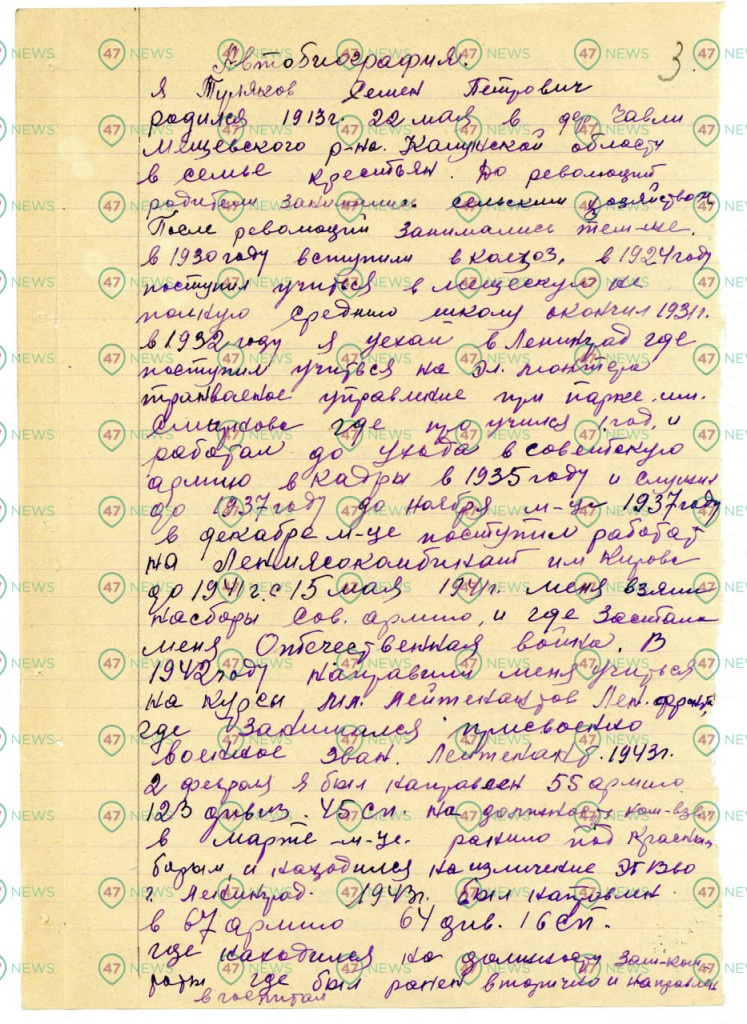 3
Автобиография.
Я Туляков Семен Петрович
родился 1913г. 22 мая в дер. Чавли
Мещевского р-на. Калужской области
в семье крестьян. До революций
родители занимались сельским хозяйством
После революций занимались тем-же.
в 1930 году вступили в колхоз, в 1924 году
поступил учиться в мещескую не
полную среднию школу окончил 1931г.
в 1932 году я уехал в Ленинград где
поступил учиться на эл. монтера
трамваеное управление при парке. им.
Смирнова где проучился 1 год. и
работал до ухода в советскую
армию в кадры в 1935 году и служил
до 1937 году до ноября м-ца 1937 году
в декабре м-це поступил работат
на Ленмясокомбинат им Кирова
до 1941 г. с 15 мая 1941г. меня взяли
насборы Сов. армию, и где Застала
меня Отечественная война. В
1942 году направили меня учиться
на курсы мл. лейтенантов Лен. фронта,
где занимался присвоенно
военное зван. Лейтенант. 1943г.
2 февраля я был направлен 55 армию
123 дивиз. 45 сп. на должность ком-взв.
в марте м-це. ранило под Красным
бором, и находился на изличение ЭГ
г. Ленинград. 1943г. был направлен
в 67 армию 64 див. 16 сп.
где находился на должност зам-ком
роты где был ранен вторично и направлен
в госпитал
47 NEWS